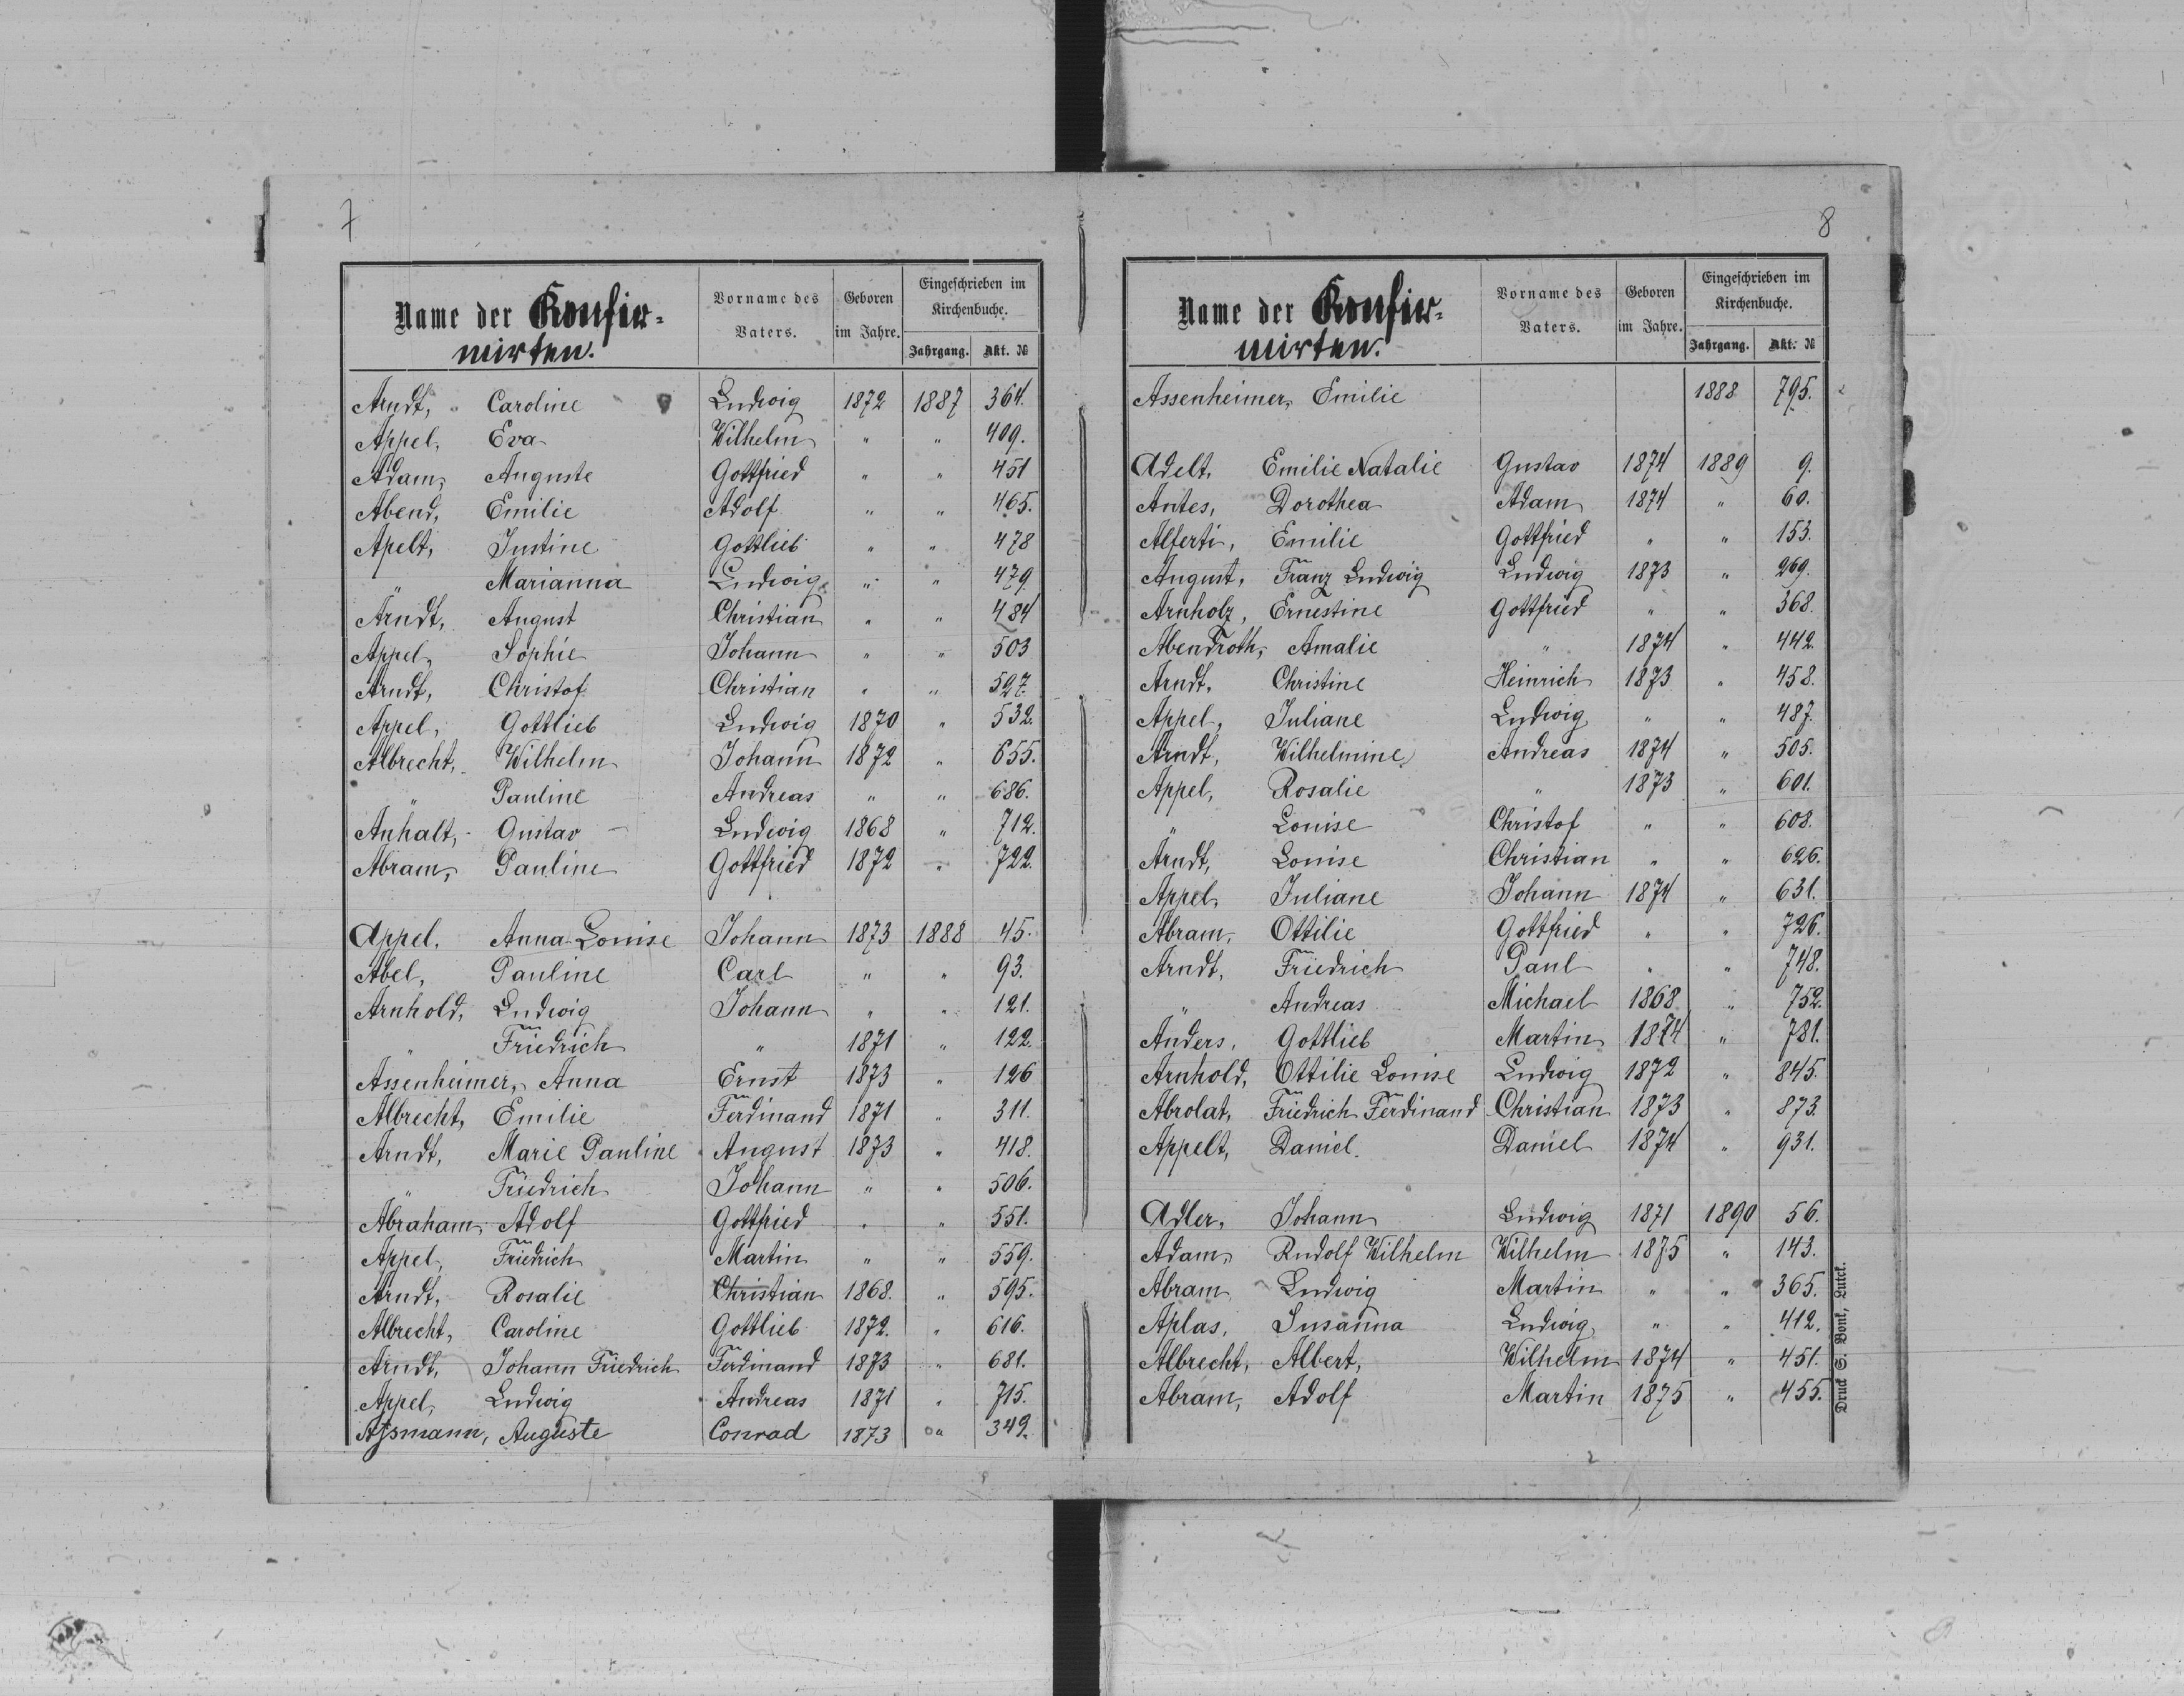 7
Name der Konfir-
mirten.
Vorname des
Vaters.
Geboren
im Jahre.
Eingeschrieben im
Kirchenbuche.
Jahrgang. Akt. №
Arndt, Caroline Ludwig 1872 1887 364.
Appel, Eva Wilhelm " " 409.
Adam, Auguste Gottfried " " 451
Abend, Emilie Adolf " " 465.
Apelt, Justine Gottlieb " " 478
" Marianna Ludwig " " 479
Arndt, August Christian " " 484
Appel, Sophie Johann " " 503
Arndt, Christof Christian " " 527.
Appel, Gottlieb Ludwig 1870 " 532.
Albrecht, Wilhelm Johann 1872 " 655.
" Pauline Andreas " " 686.
Anhalt, Gustav Ludwig 1868 " 712.
Abram, Pauline Gottfried 1872 " 722.
Appel, Anna Louise Johann 1873 1888 45.
Abel, Pauline Carl " " 93.
Arnhold, Ludwig Johann " " 121.
" Friedrich " 1871 " 122.
Assenheimer, Anna Ernst 1873 " 126
Albrecht, Emilie Ferdinand 1871 " 311.
Arndt, Marie Pauline August 1873 " 418.
" Friedrich Johann " " 506.
Abraham, Adolf Gottfried " " 551.
Appel, Friedrich Martin " " 559.
Arndt, Rosalie Christian 1868. " 595.
Albrecht, Caroline Gottlieb 1872. " 616.
Arndt, Johann Friedrich Ferdinand 1873 " 681.
Appel, Ludwig Andreas 1871 " 715.
Assmann, Auguste Conrad 1873 " 349.
8
Name der Konfir-
mirten.
Vorname des
Vaters.
Geboren
im Jahre.
Eingeschrieben im
Kirchenbuche.
Jahrgang. Akt. №
Assenheimer, Emilie 1888 795.
Adelt, Emilie Natalie Gustav 1874 1889 9.
Antes, Dorothea Adam 1874 " 60.
Alferti, Emilie Gottfried " " 153.
August, Franz Ludwig Ludwig 1873 " 269.
Arnholz, Ernestine Gottfried " " 368.
Abendroth, Amalie " 1874 " 442.
Arndt, Christine Heinrich 1873 " 458.
Appel, Juliane Ludwig " " 487.
Arndt, Wilhelmine Andreas 1874 " 505.
Appel, Rosalie " 1873 " 601.
" Louise Christof " " 608.
Arndt, Louise Christian " " 626.
Appel, Juliane Johann 1874 " 631.
Abram, Ottilie Gottfried " " 726.
Arndt, Friedrich Paul " " 748.
" Andreas Michael 1868 " 752.
Anders, Gottlieb Martin 1874 " 781.
Arnhold, Ottilie Louise Ludwig 1872 " 845.
Abrolat, Friedrich Ferdinand Christian 1873 " 873.
Appelt, Daniel. Daniel 1874 " 931.
Adler, Johann Ludwig 1871 1890 56.
Adam, Rudolf Wilhelm Wilhelm 1875 " 143.
Abram Ludwig Martin " " 365.
Aplas, Susanna Ludwig " " 412.
Albrecht, Albert, Wilhelm 1874 " 451.
Abram, Adolf Martin 1875 " 455.
Druck S. Bonk, Lutck.
2